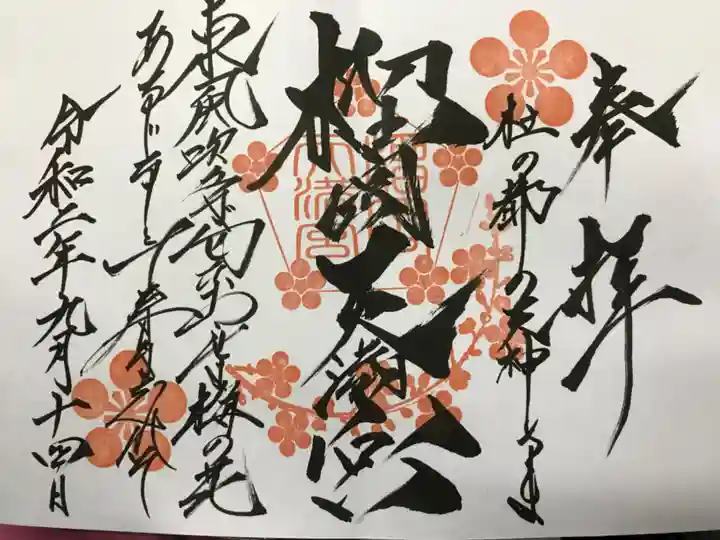 奉拝
杜の都の天神さま
榴岡天満宮
東風吹かば匂ひおこせよ梅の花
あるじなしとて春
令和二年九月十四日